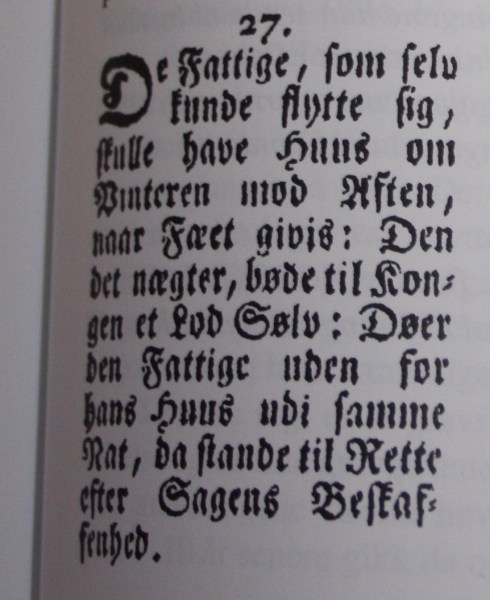 27.
De Fattige, som selv
kunde flytte sig,
skulle have Huus om
Vinteren mod Aften,
naar Fæet givis: Den
det nægter, bøde til Kon-
gen et Lod Sølv: Døer
den Fattige uden for
hans Huus udi samme
Nat, da stande til Rette
efter Sagens Beskaf-
fenhed.